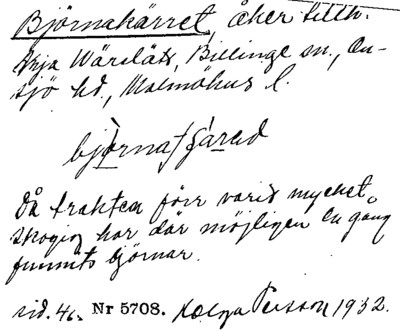 Björnakärret, åker tillh.
Wäreläts, Billinge sn., On-
sjö hd., Malmöhus l.
björna
Då trakten förr varit mycket
skogig har där möjligen en gång
funnits björnar.
sid. 4. Nr 5708. Helga Persson 1932.